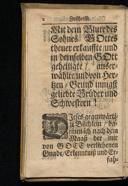 Mit dem Blut des
Sohnes GOttes
theuer erkauffte, und
in demselben GOtt
geheiligte, auser-
wählte, und von Her-
tzen Grund innigst
geliebte Brüder und
Schwestern!
Dieses gegenwärti-
ge Büchlein,
ich nach dem
Maaß der mir
von GOTT verliehenen
Gnade, Erkenntnuß und Er-
fah-